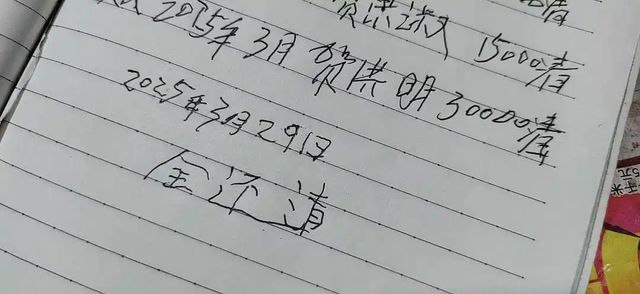 贺洪义 15000清
2025年3月 贺洪明 30000清
2025年3月29日
全还清